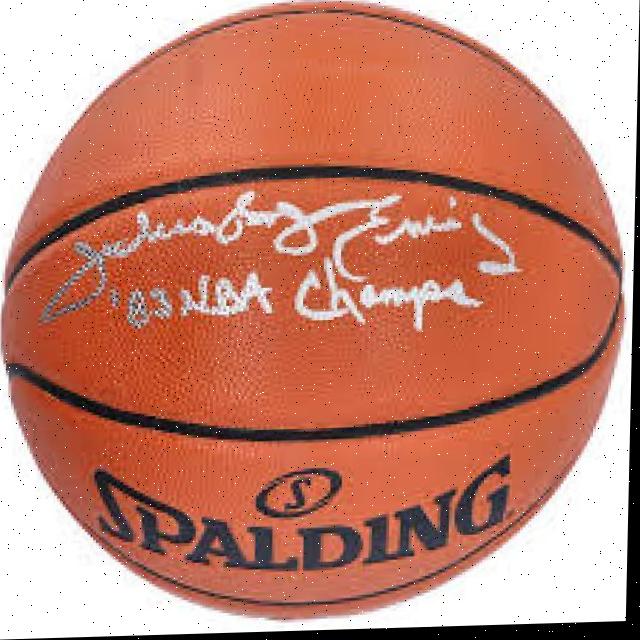 Julius "Dr. J" Erving
'83 NBA Champs
S
SPALDING